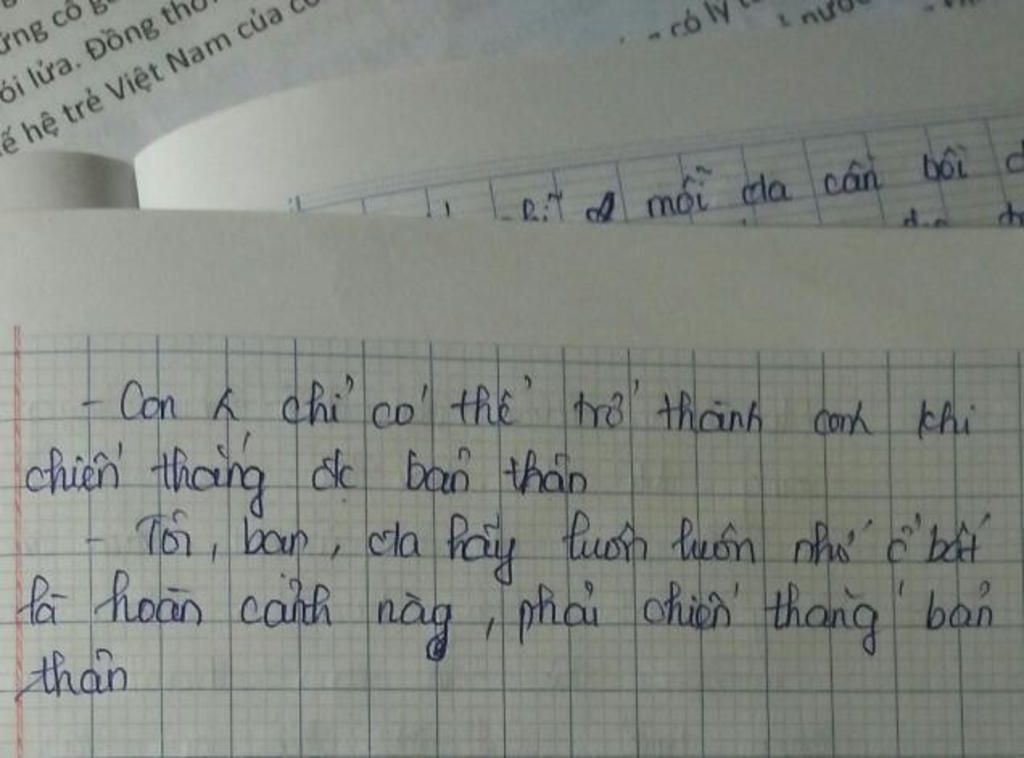 ừng cố g
ói lửa. Đồng thờ
ế hệ trẻ Việt Nam của c
- có lý
mỗi cta cần bồi
- Con k chỉ có thể trở thành conh khi
chiến thắng đc bản thân
- Tôi, bạn, cta hãy luôn luôn nhớ ở bất
là hoàn cảnh nàg, phải chiến thắng bản
thân